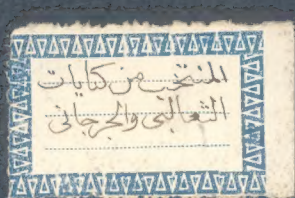 المنتخب من كنايات
الثعالبى والجرجانى